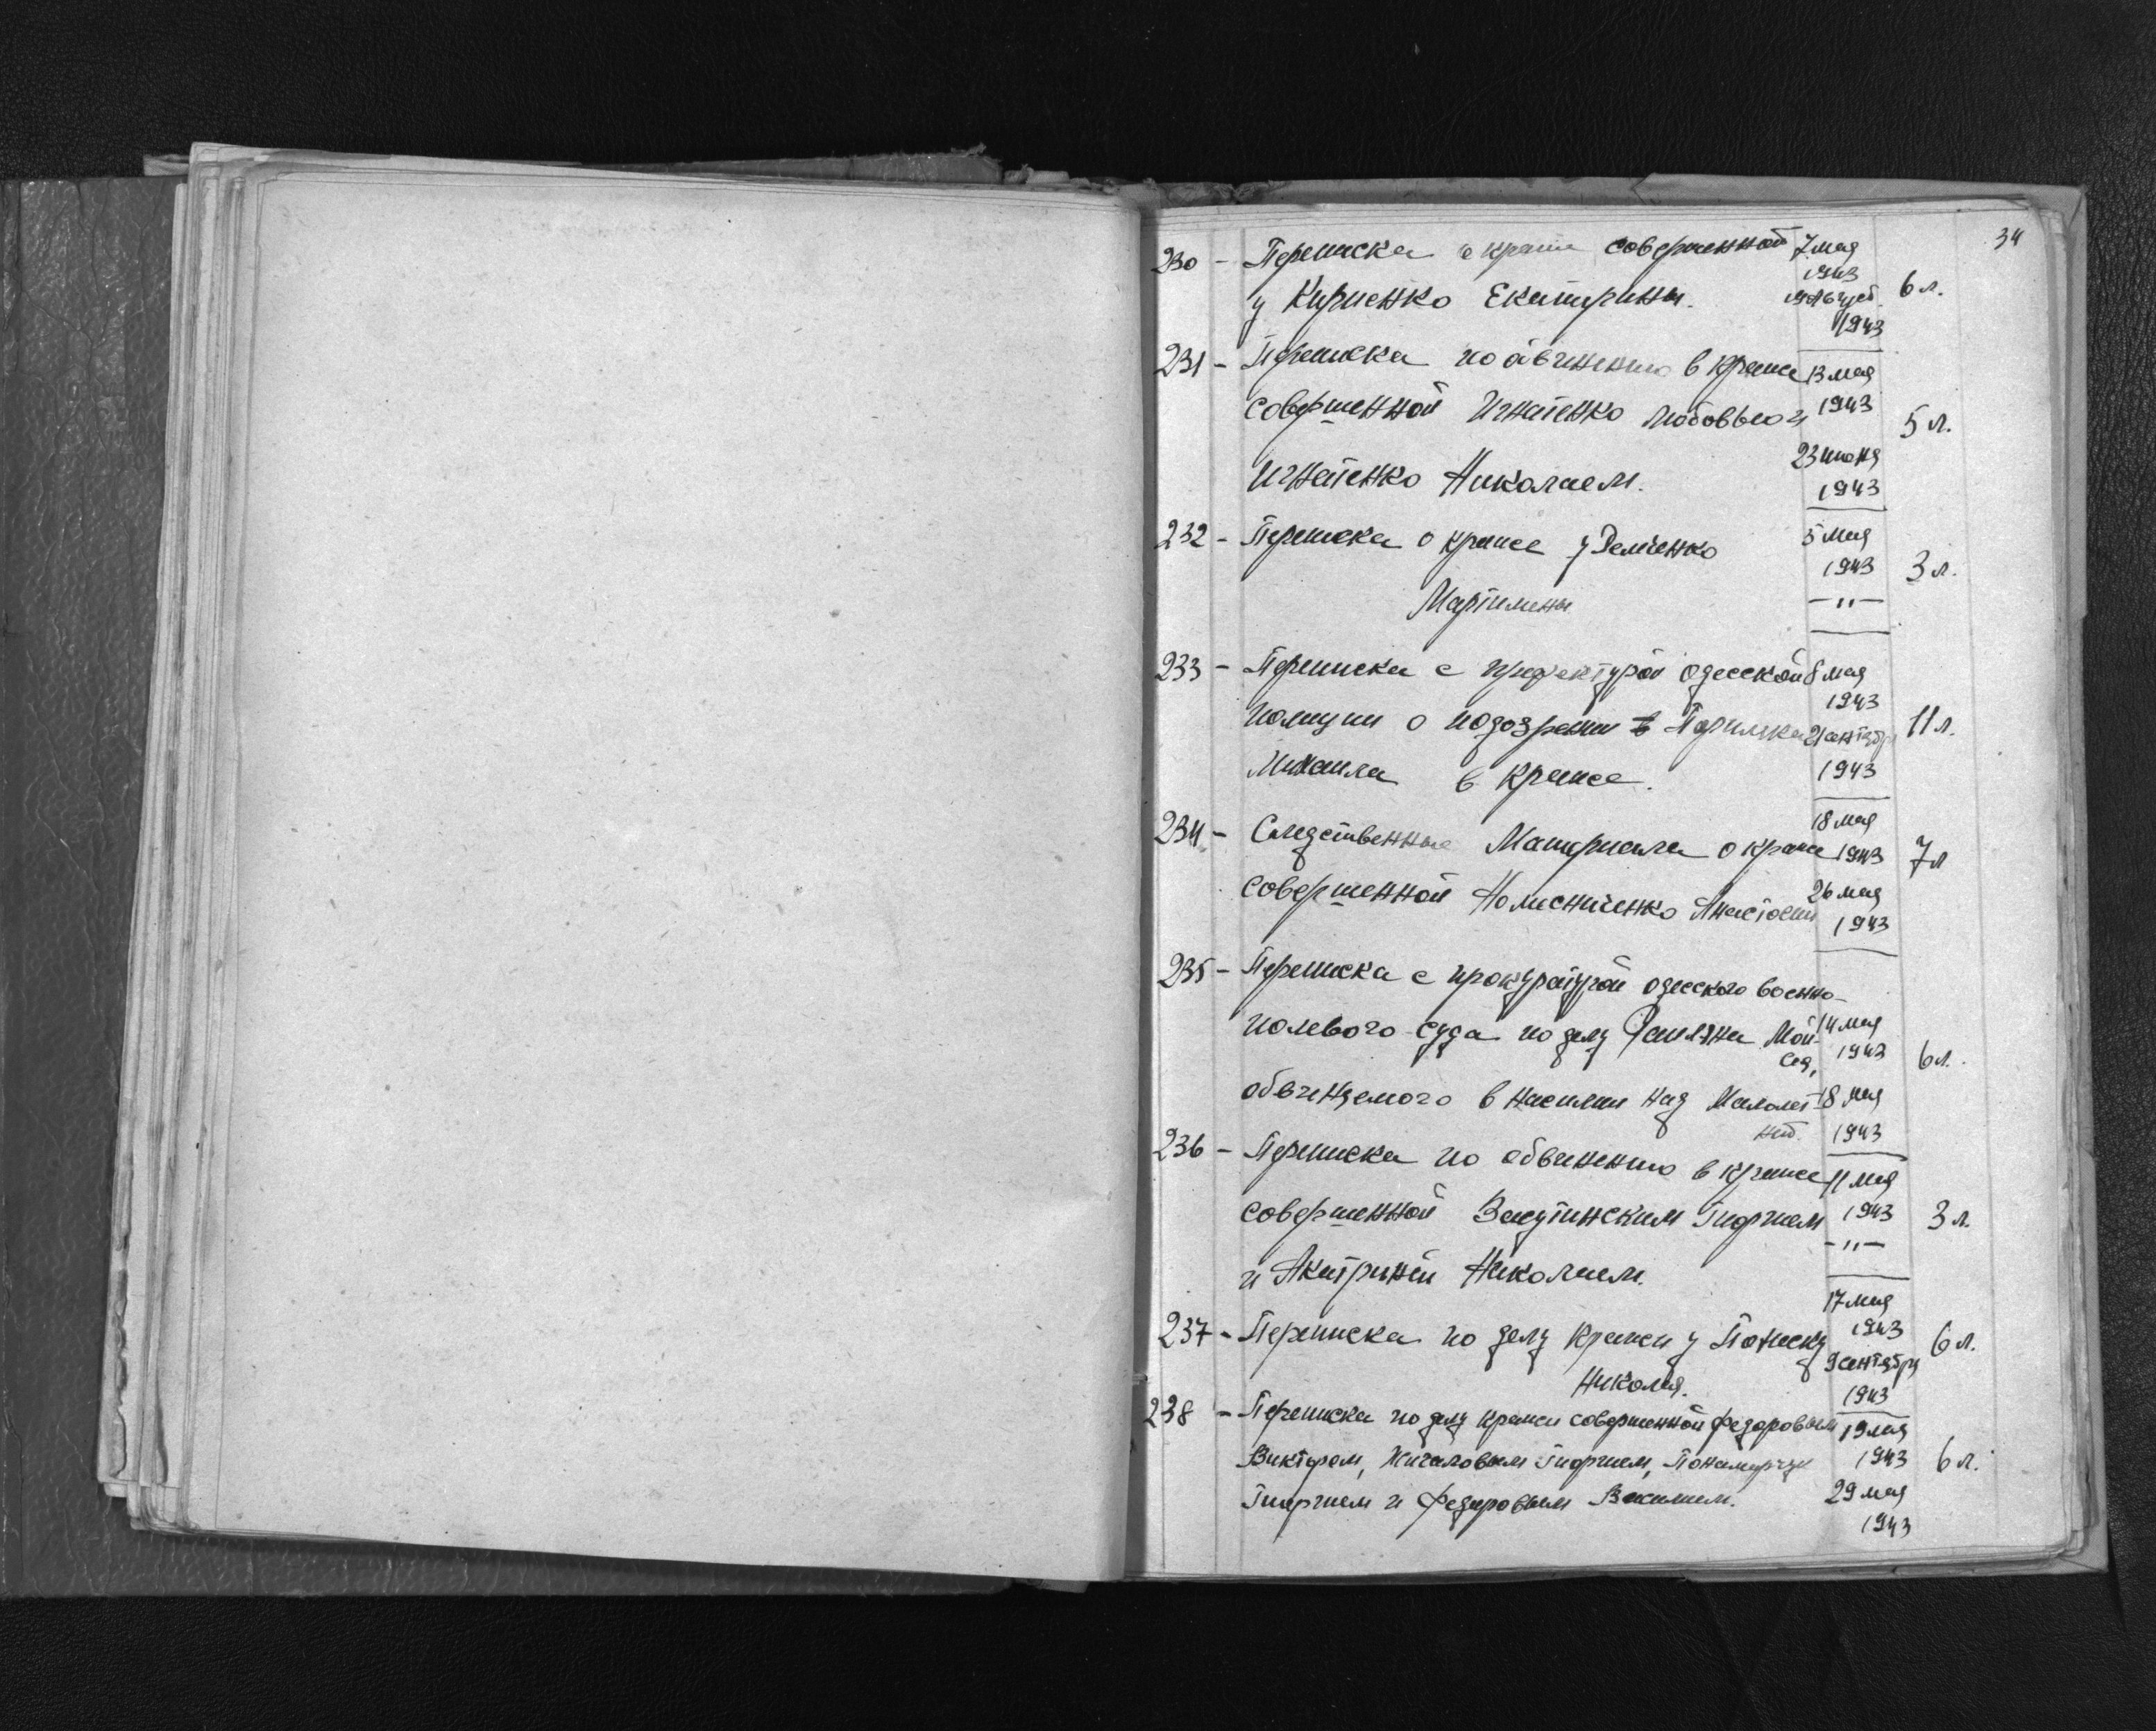 34
230 - Переписка о краже совершенной 7 мая
1943
у Кириенко Екатерины. 6 л.
1943
231 - Переписка по обвинению в краже 13 мая
совершенной Игнатенко Любовью и 1943 5 л.
23 июня
Игнатенко Николаем. 1943
232 - Переписка о краже у Демченко 5 мая
1943 3 л.
—"—
233 - Переписка с префектурой одесской 8 мая
1943
полиции о подозрении 21 сентябр 11 л.
Михаила в краже. 1943
18 мая
234 - Следственные Материала о краже 1943 7 л
совершенной Анастасии 26 мая
1943
235 - Переписка с прокуратурой одесского военно-
полевого суда по делу Мой- 14 мая
сея, 1943 6 л.
обвиняемого в насилии над Малолет- 18 мая
ней. 1943
236 - Переписка по обвинению в краже 11 мая
совершенной Георгием 1943 3 л.
—"—
и Николаем.
17 мая
237 - Переписка по делу кражи у 1943 6 л.
9 сентября
Николая. 1943
238 - Переписка по делу кражи совершенной Федоровым 19 мая
Виктором, Жигаловым Георгием, 1943 6 л.
Георгием и Федоровым Василием. 29 мая
1943